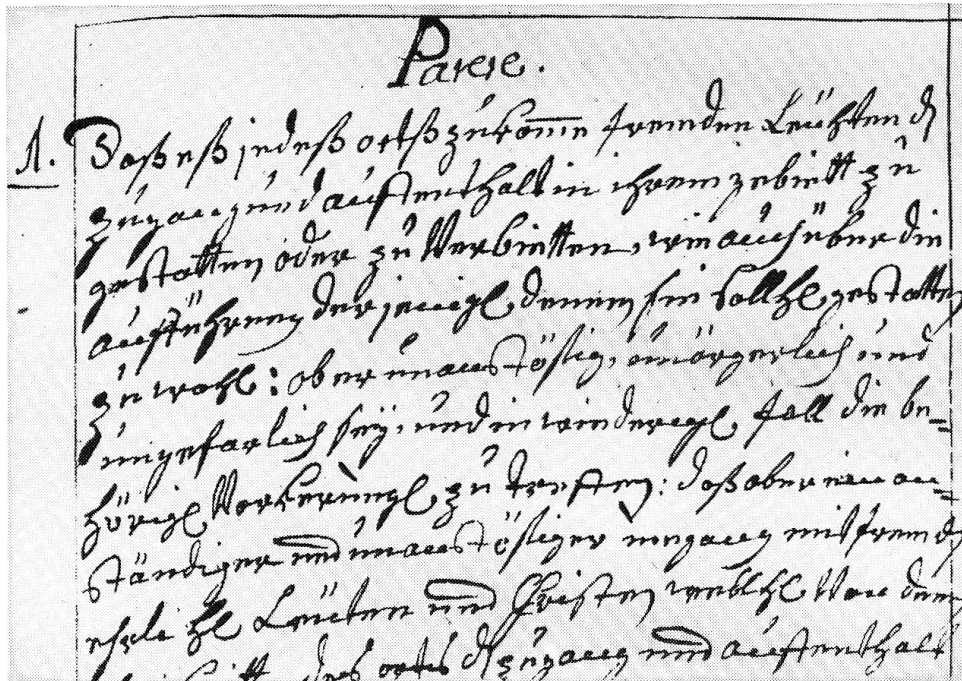 Parere.
1. Daß eß jedeß ortß zukomme fremden Leüthen dz
zugang und auffenthalt in ihrem gebiett zu
gestatten oder zu Verbietten, wie auch über die
aufführung der jenige, denen sie solche gestatten
zu wache: ob er unanstößig, unärgerlich und
ungefarlich sey, und in wiederige fall die be=
hörige Vorkerunge zu treffen: daß aber ein an=
ständiger und unanstößiger umgang mit fremde
ehrliche Leüten und Christen welche Von dem
des orts dz zugang und auffenthalt